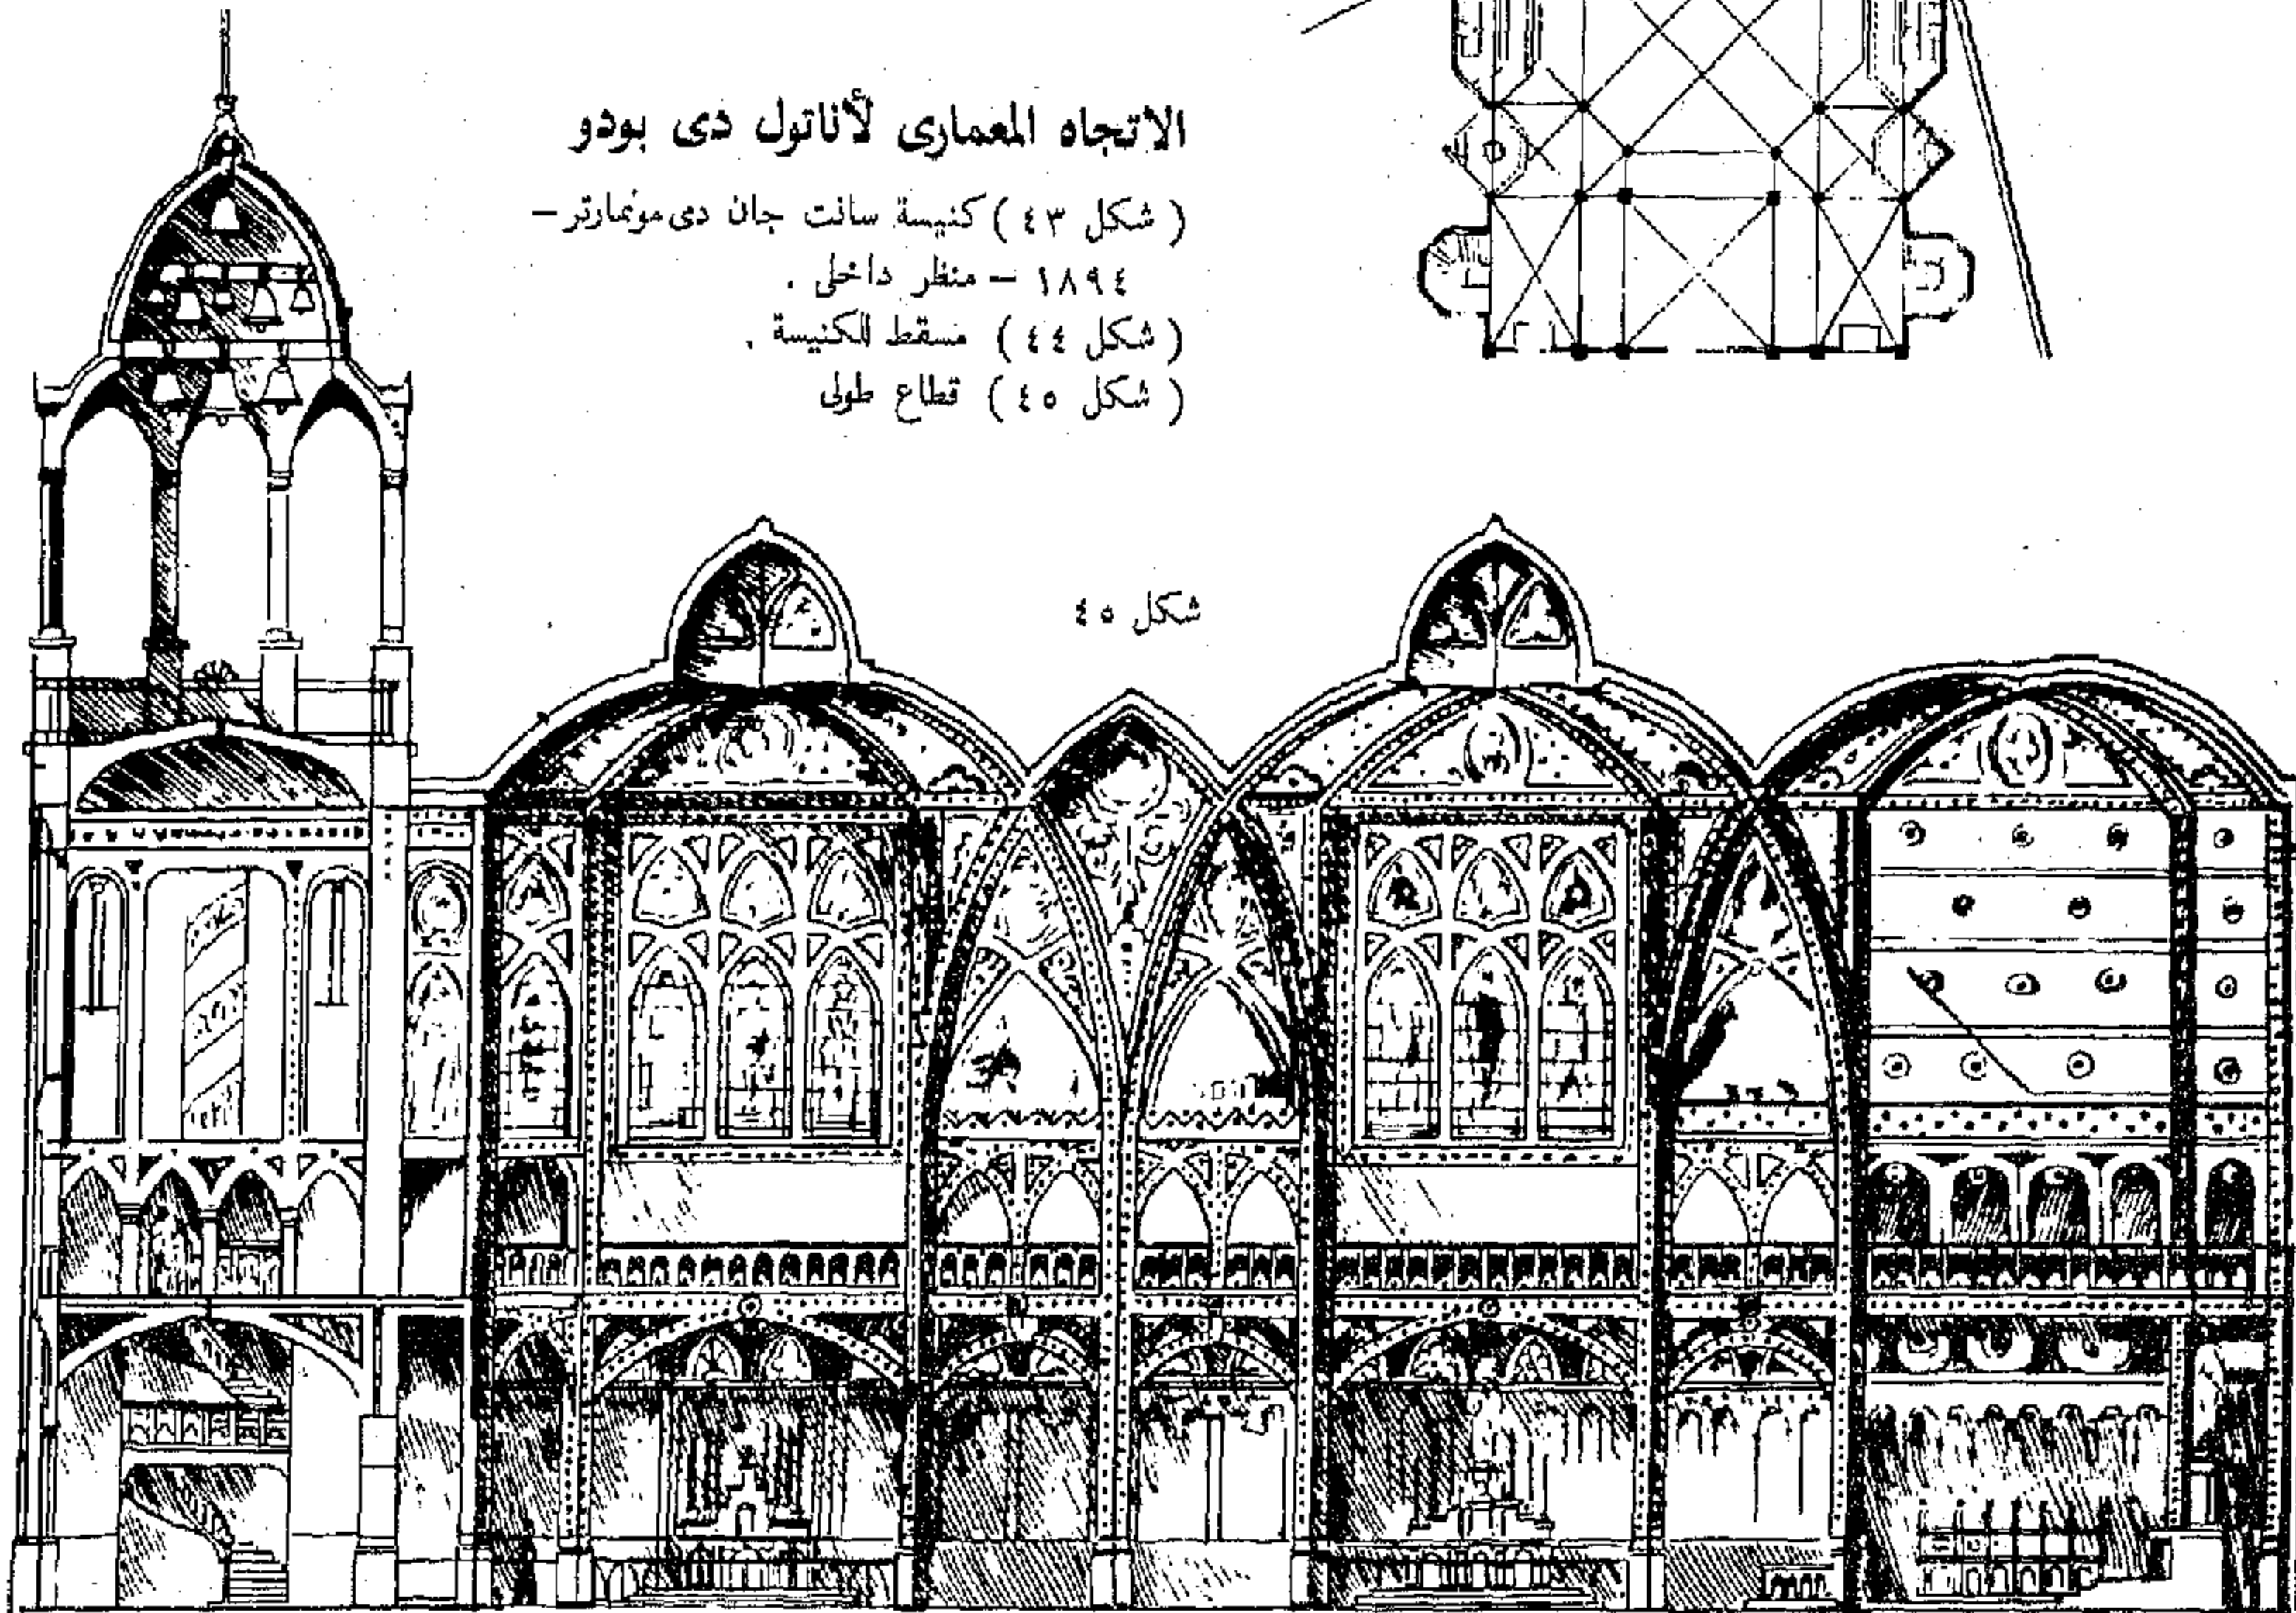 الاتجاه المعمارى لأناتول دى بودو
( شكل ٤٣ ) كنيسة سانت جان دى مونمارتر –
١٨٩٤ – منظر داخلى .
( شكل ٤٤ ) مسقط للكنيسة .
( شكل ٤٥ ) قطاع طولى
شكل ٤٥